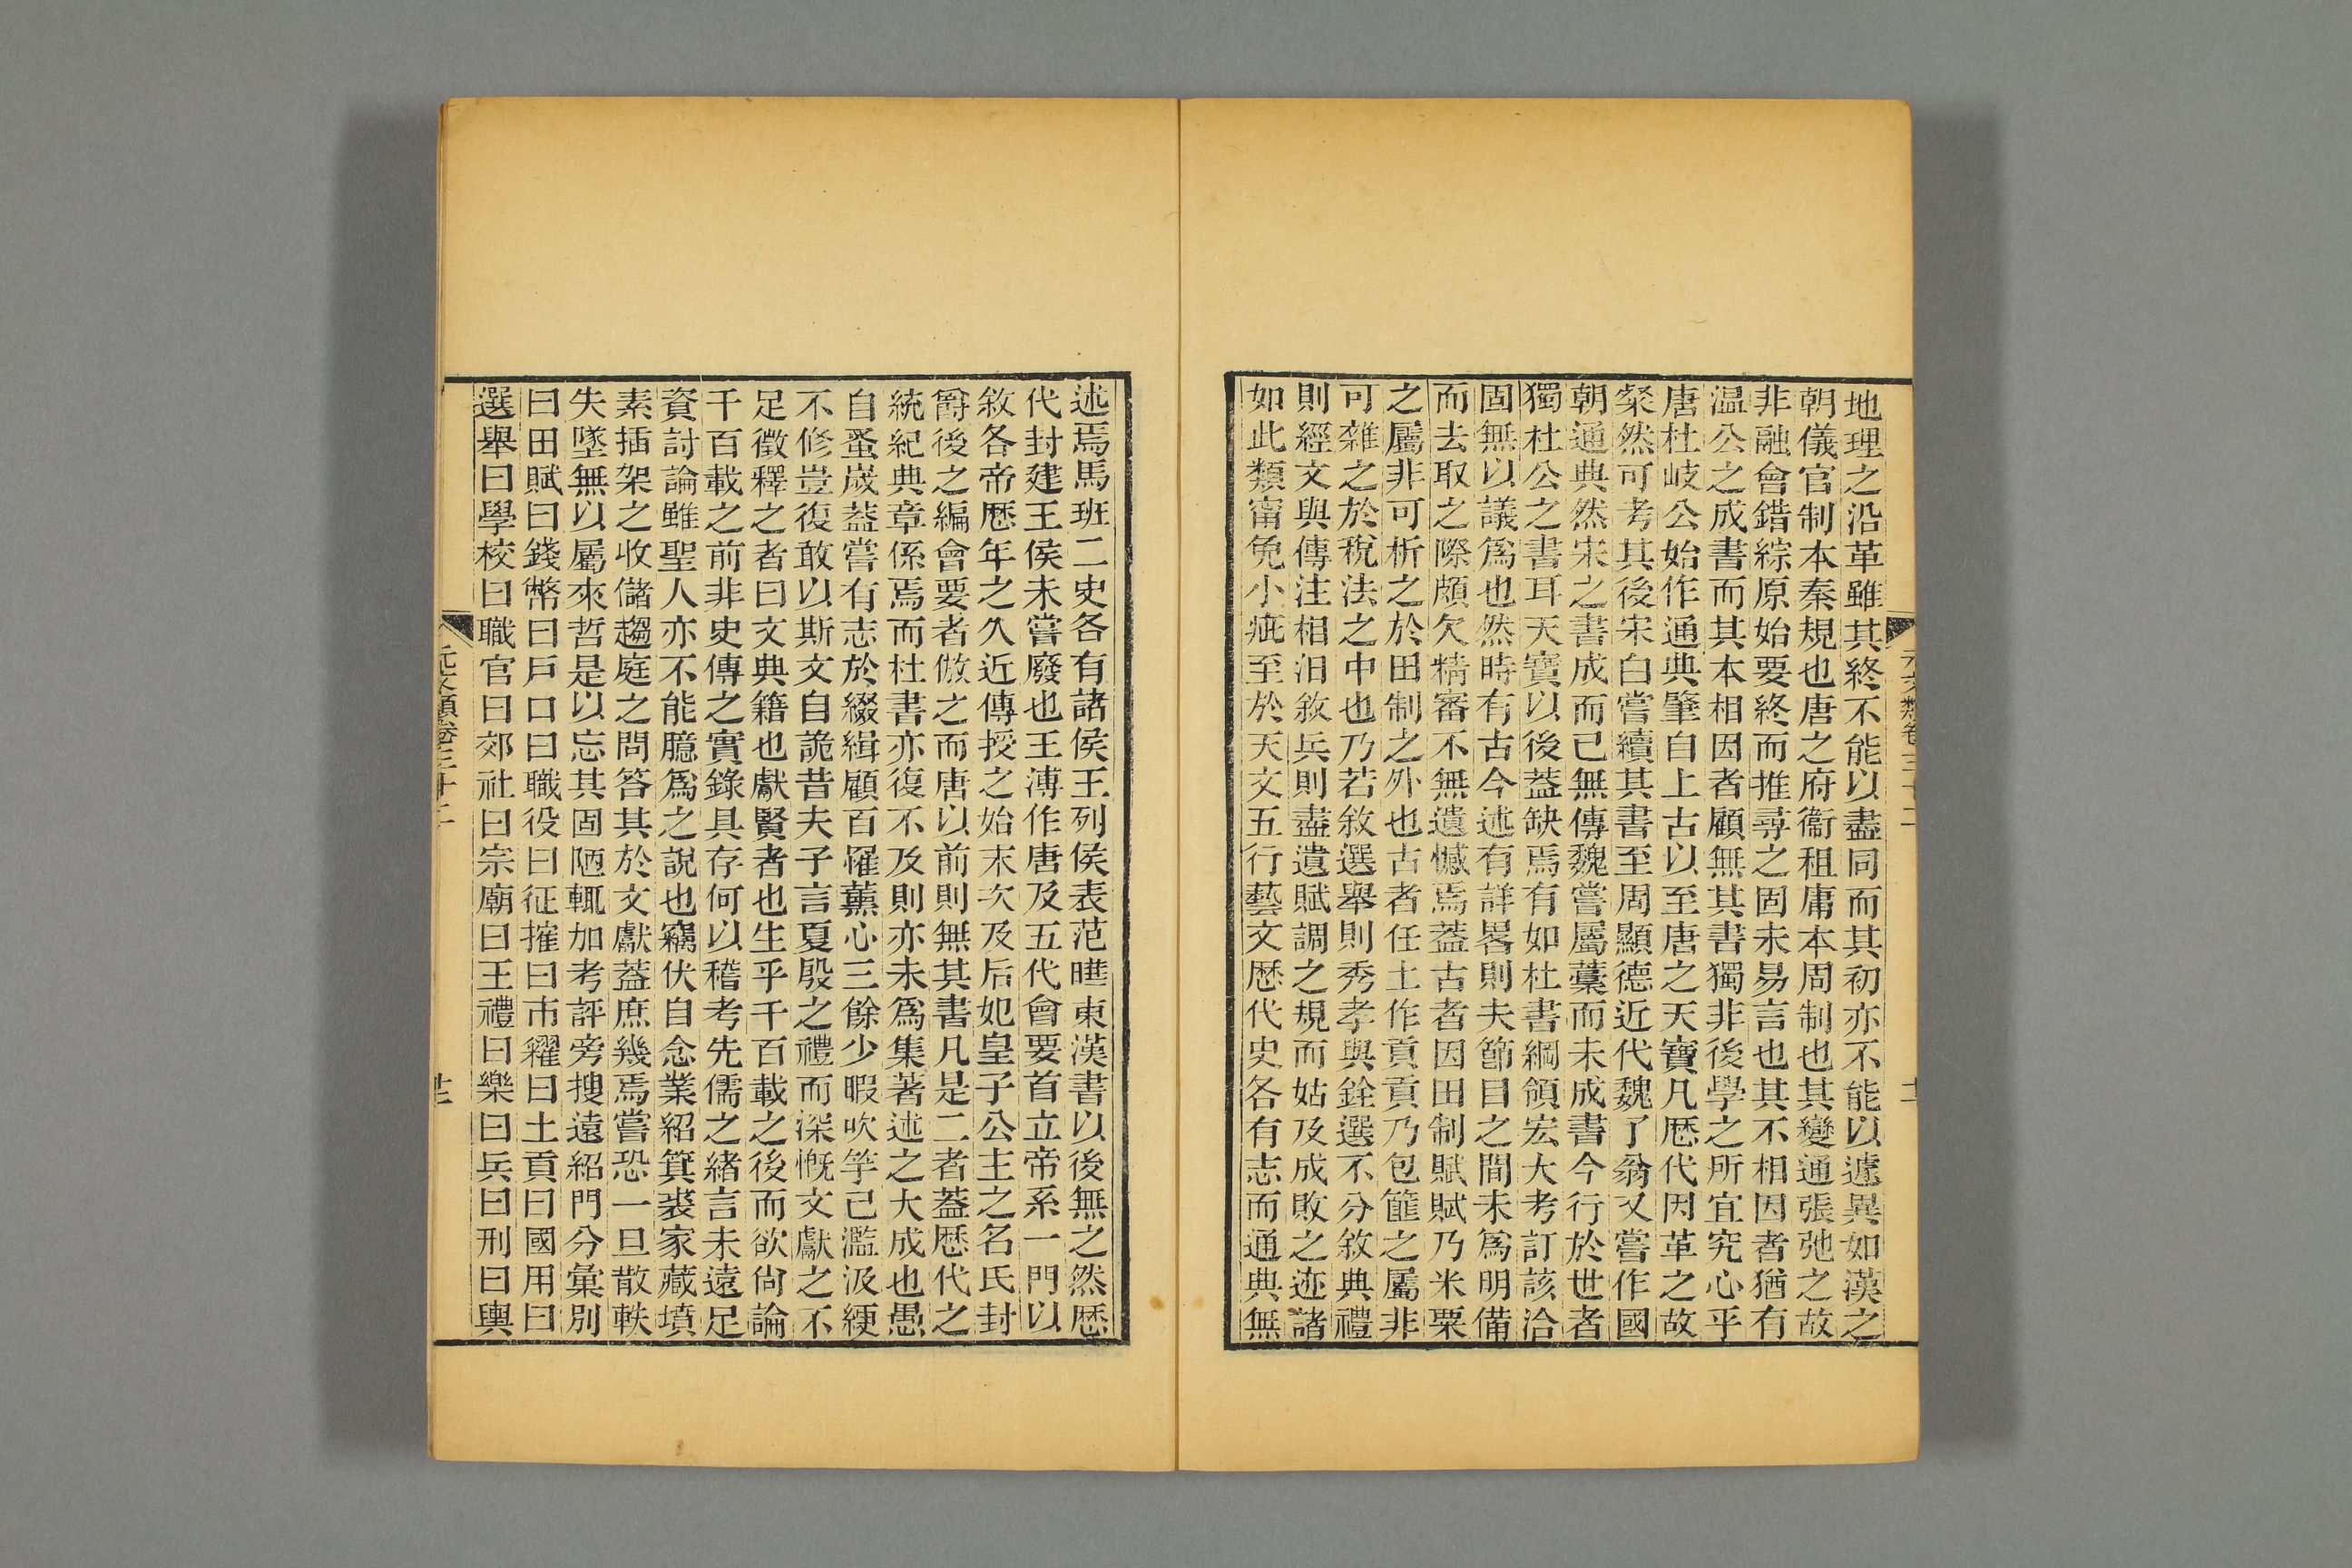 地理之沿革雖其終不能以盡同而其初亦不能以遽異如漢之
朝儀官制本秦規也唐之府衞租庸本周制也其變通張弛之故
非融會錯綜原始要終而推尋之固未易言也其不相因者猶有
温公之成書而其本相因者顧無其書獨非後學之所宜究心乎
唐杜岐公始作通典肇自上古以至唐之天寶凡厯代因革之故
粲然可考其後宋白嘗續其書至周顯德近代魏了翁又嘗作國
朝通典然宋之書成而已無傳魏嘗屬藁而未成書今行於世者
獨杜公之書耳天寶以後葢缺焉有如杜書綱領宏大考訂該洽
固無以議爲也然時有古今述有詳畧則夫節目之間未爲明備
而去取之際頗欠精審不無遺憾焉葢古者因田制賦賦乃米粟
之屬非可析之於田制之外也古者任土作貢貢乃包篚之屬非
可雜之於稅法之中也乃若敘選舉則秀孝與銓選不分敘典禮
則經文與傳注相汨敘兵則盡遺賦調之規而姑及成敗之迹諸
如此類甯免小疵至於天文五行藝文厯代史各有志而通典無
述焉馬班二史各有諸侯王列侯表范曄東漢書以後無之然厯
代封建王侯未嘗廢也王溥作唐及五代會要首立帝系一門以
敘各帝厯年之久近傳授之始末次及后妃皇子公主之名氏封
爵後之編會要者倣之而唐以前則無其書凡是二者葢厯代之
統紀典章係焉而杜書亦復不及則亦未爲集著述之大成也愚
自蚤嵗葢嘗有志於綴緝顧百罹薰心三餘少暇吹竽已濫汲綆
不修豈復敢以斯文自詭昔夫子言夏殷之禮而深慨文獻之不
足徵釋之者曰文典籍也獻賢者也生乎千百載之後而欲尙論
千百載之前非史傳之實錄具存何以稽考先儒之緒言未遠足
資討論雖聖人亦不能臆爲之說也竊伏自念業紹箕裘家藏墳
素插架之收儲趨庭之問答其於文獻葢庶幾焉嘗恐一旦散軼
失墜無以屬來哲是以忘其固陋輒加考評旁搜遠紹門分彙別
曰田賦曰錢幣曰戶口曰職役曰征搉曰市糴曰土貢曰國用曰
選舉曰學校曰職官曰郊社曰宗廟曰王禮曰樂曰兵曰刑曰輿
元文類卷三十二